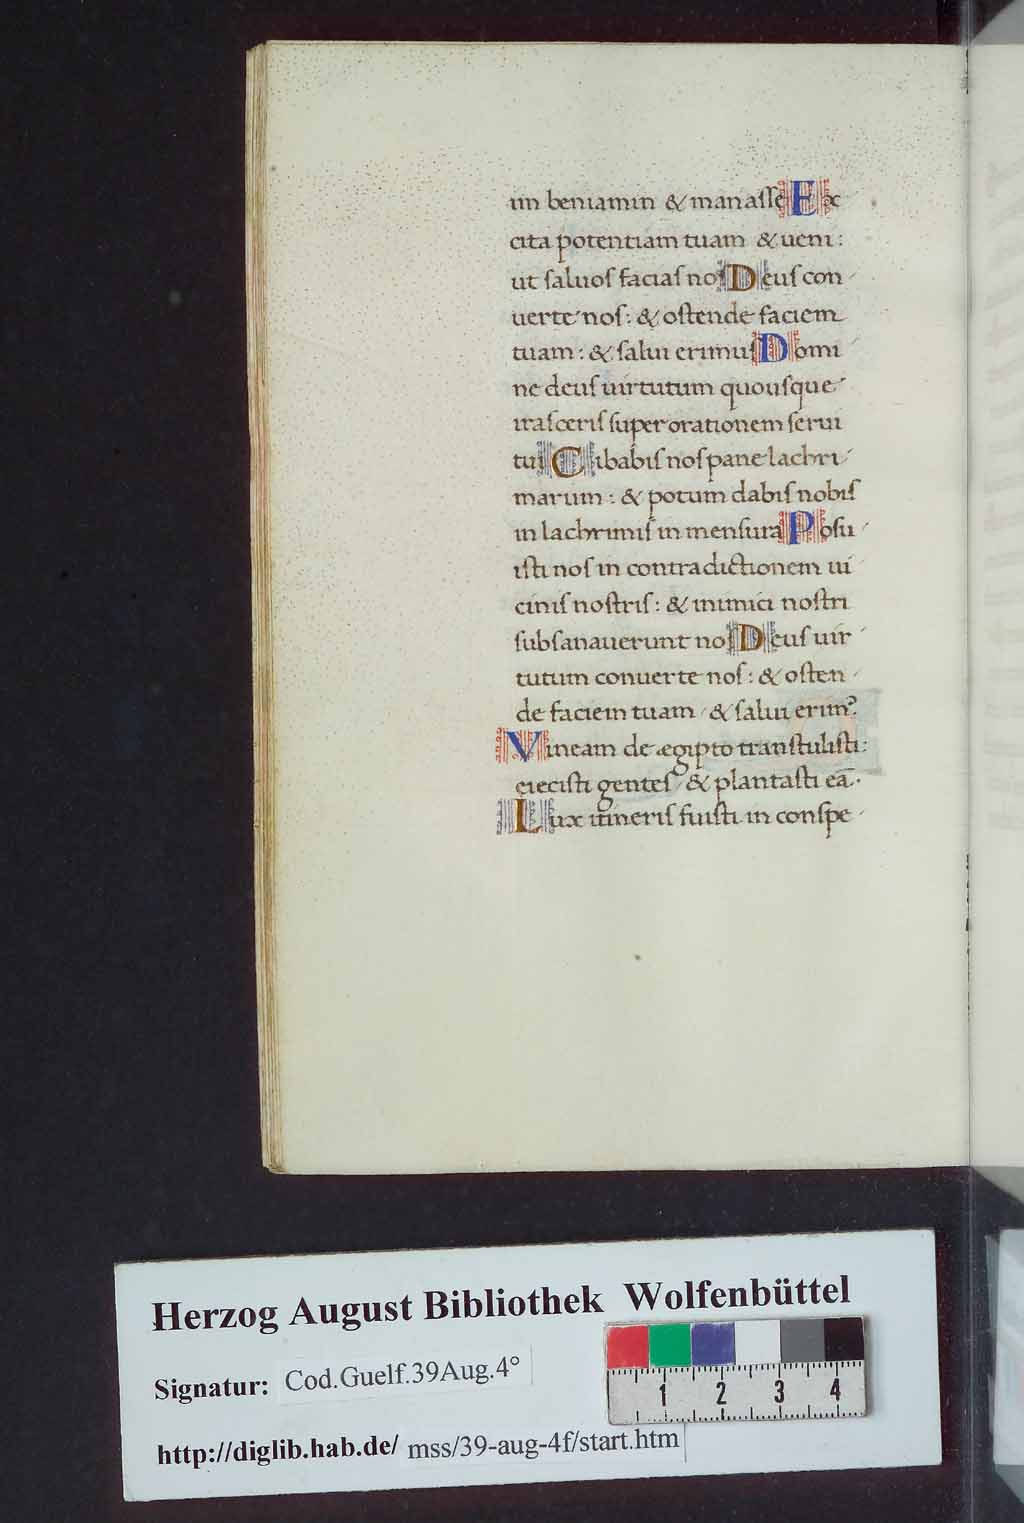 im beniamin & manasse Ex
cita potentiam tuam & ueni:
ut saluos facias nos Deus con
uerte nos: & ostende faciem
tuam: & salui erimus Domi
ne deus uirtutum quousque
irasceris super orationem serui
tui Cibabis nos pane lachri
marum: & potum dabis nobis
in lachrimis in mensura Posu
isti nos in contradictionem ui
cinis nostris: & inimici nostri
subsanauerunt nos Deus uir
tutum conuerte nos: & osten
de faciem tuam & salui erim⁹.
Vineam de ægipto transtulisti:
eiecisti gentes & plantasti eā.
Lux itineris fuisti in conspe
Herzog August Bibliothek Wolfenbüttel
Signatur: Cod.Guelf.39Aug.4°
http://diglib.hab.de/ mss/39-aug-4f/start.htm
1 2 3 4